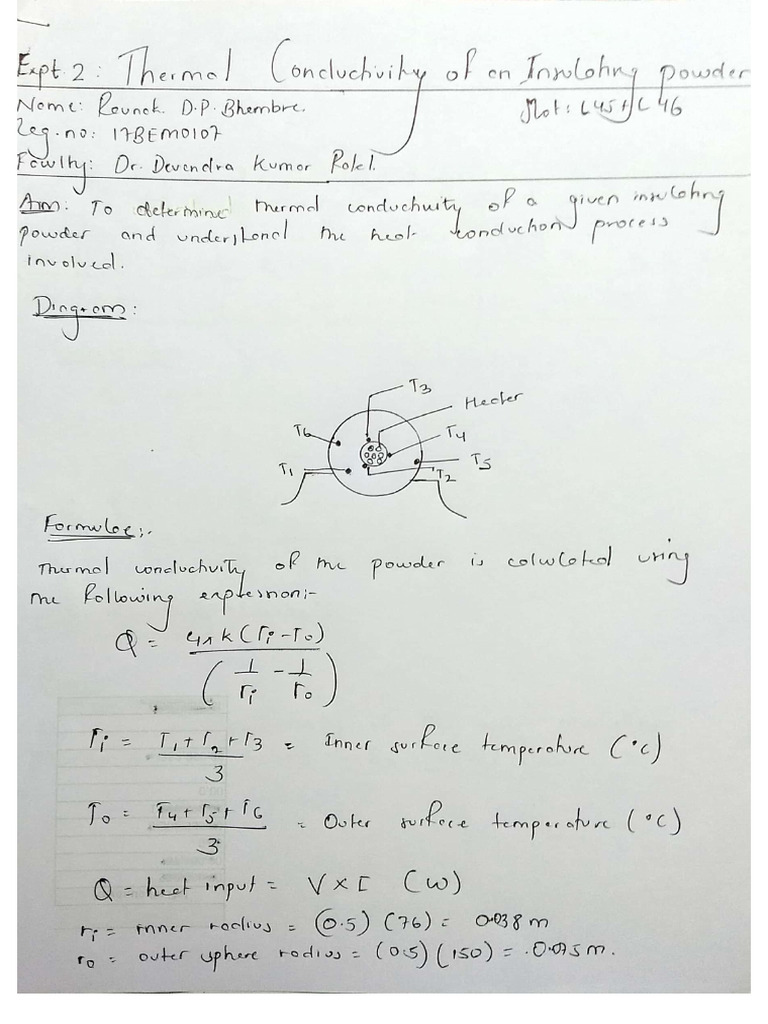 Expt. 2 : Thermal Conductivity of an Insulating powder
Name: Rounak. D.P. Bhembre. Slot: L45+L46
Reg.no: 17BEM0107
Faculty: Dr. Devendra Kumar Patel.
Aim: To determine thermal conductivity of a given insulating
powder and understand the heat conduction process
involved.
Diagram:
T3
Heater
T6
T4
T5
T1
T2
Formulae:-
Thermal conductivity of the powder is calculated using
the following expression:-
Q = 4πk(Ti-To) / (1/ri - 1/ro)
Ti = T1+T2+T3 / 3 = Inner surface temperature (°C)
To = T4+T5+T6 / 3 = Outer surface temperature (°C)
Q = heat input = V×I (W)
ri = inner radius = (0.5)(76) = 0.038m
ro = outer sphere radius = (0.5)(150) = .0.075m.